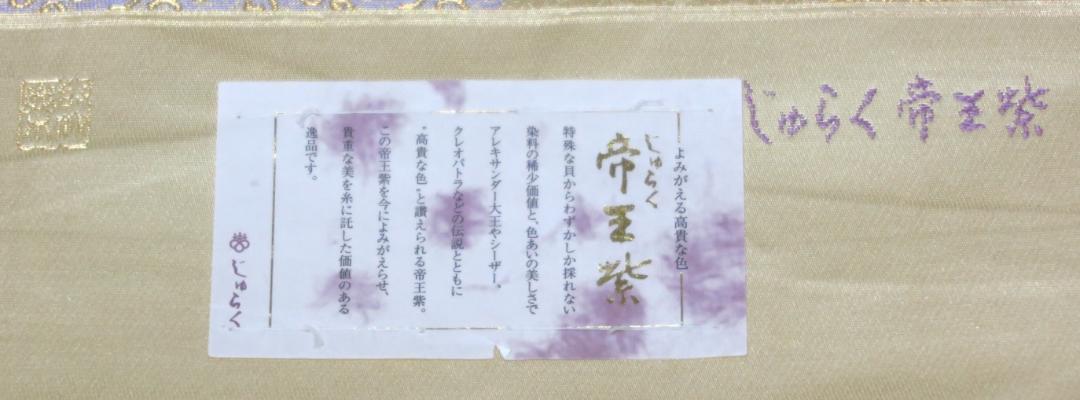 じゅらく 帝王紫
よみがえる高貴な色
じゅらく
帝王紫
特殊な貝からわずかしか採れない
染料の稀少価値と、色あいの美しさで
アレキサンダー大王やシーザー、
クレオパトラなどの伝説とともに
"高貴な色"と讃えられる帝王紫。
この帝王紫を今によみがえらせ、
貴重な美を糸に託した価値のある
逸品です。
じゅらく